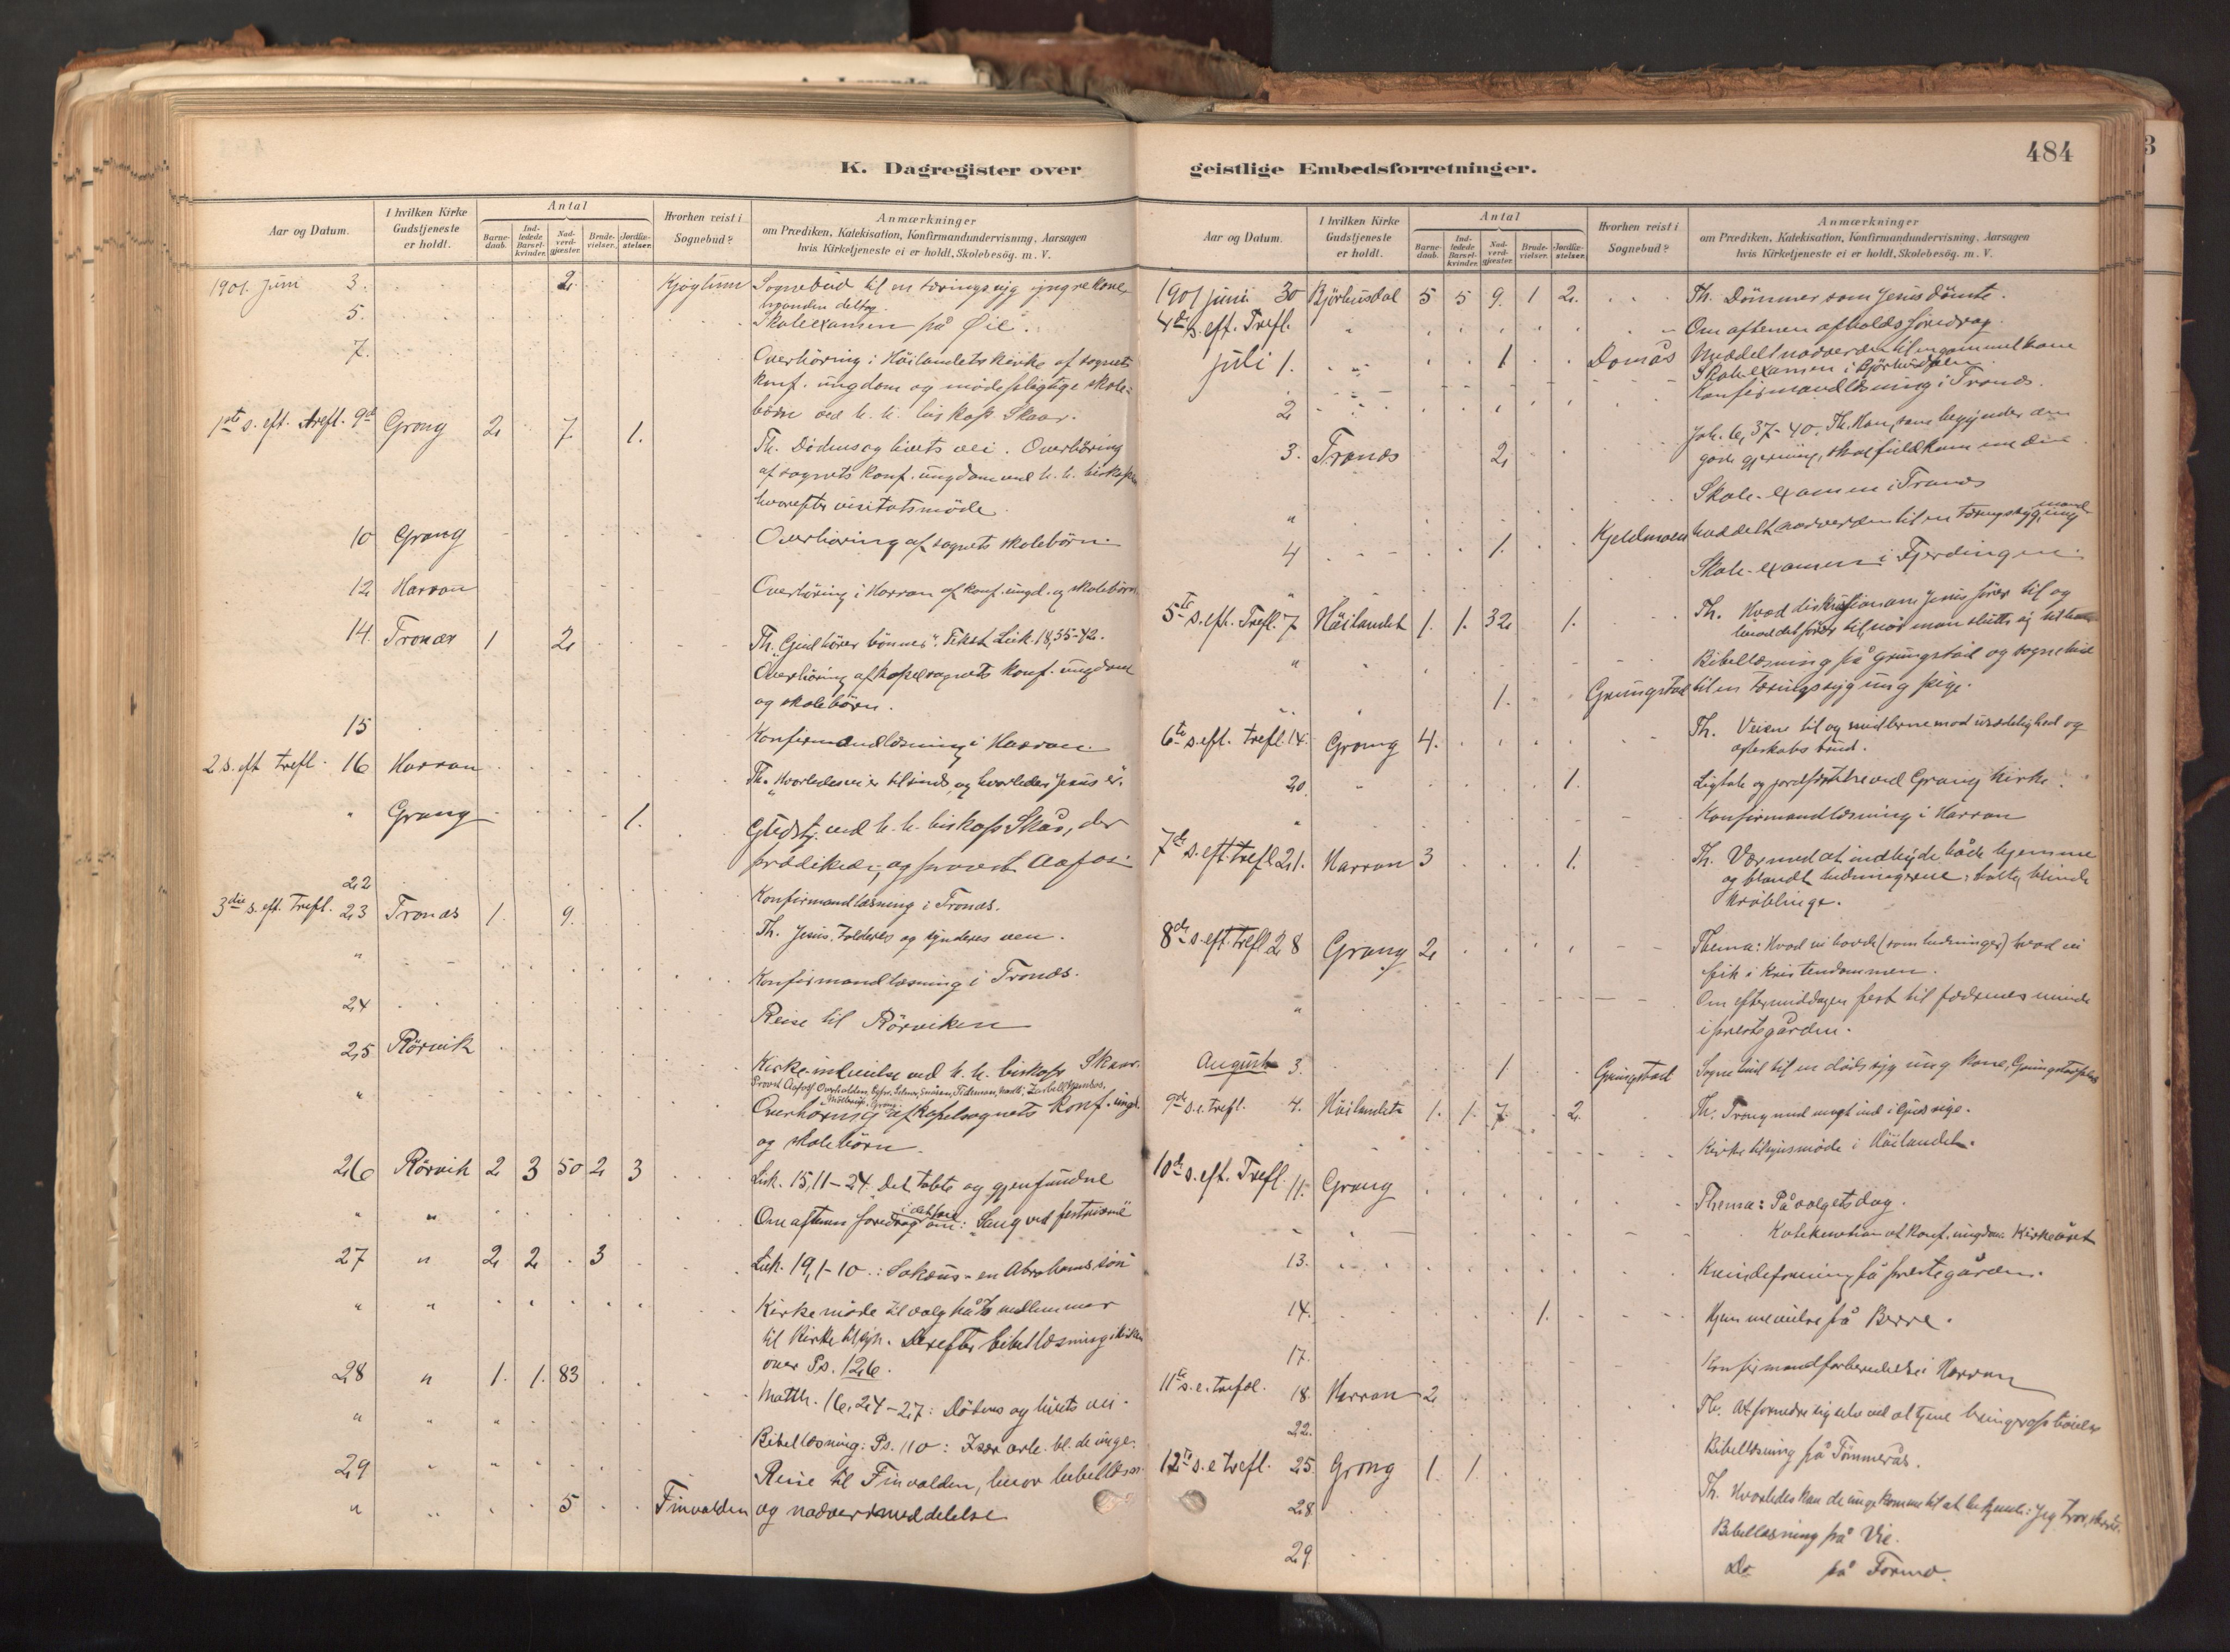 484
K. Dagregister over
geistlige Embedsforretninger.
Aar og Datum.
I hvilken Kirke Gudstjeneste er holdt.
Antal
Barne-daab.
Ind-ledede Barsel-kvinder.
Nad-verd-gjæster.
Brude-vielser.
Jordfæ-stelser.
Hvorhen reist i Sognebud?
Anmærkninger
om Prædiken, Katekisation, Konfirmandundervisning, Aarsagen
hvis Kirketjeneste ei er holdt, Skolebesög. m. V.
1901. Juni 3. 2. Kjøglum Sognebud til en tæringssyg yngre kone,
5. Skoleexamen på Øie.
7. Overhöring i Höilandets kirke af sognets
konf. ungdom og mödepligtige skole-
börn ved h. h. biskop Skaar.
1ste s. eft. trefl. 9de Grong 2 7 1. Th. Dödens og livets vei. Overhöring
af sognets konf. ungdom ved h. h. biskopen
hvorefter visitatsmöde.
10 Grong Overhöring af sognets skolebörn.
12 Harran Overhöring i Harran af konf. ungd. og skolebörn
14. Tronæs 1 2 Th. "Gud hörer bönner". Tekst Luk. 18, 35-42.
Overhöring af kapelsognets konf. ungdom
og skolebörn.
15 Konfirmandlæsning i Harran.
2 s. eft trefl. 16 Harran Th. Hvorledes vi er tilsinds, og hvorledes Jesus er.
" Grong 1. Gudstj. ved h. h. biskop Skaar, der
prædikede, og provst Aafos
22 Konfirmandlæsning i Tronæs.
3die s. eft. Trefl. 23 Tronæs 1. 9. Th. Jesus, tolderes og synderes ven.
" Konfirmandlæsning i Tronæs.
24 Reise til Rörviken
25 Rörvik Kirke-indvielse ved h. h. biskop Skaar.
" Overhöring af kapelsognets konf. ungd.
og skolebörn.
26 Rörvik 2 3 50 2 3 Luk. 15, 11-24. Det tabte og gjenfundne
" " Om aftenen foredrag om: Sang ved
27 " 2 2 3 Luk. 19, 1-10.: Sakæus - en Abrahams sön
" " Kirkemöde til valg på medlemmer
til Kirketilsyn. Derefter bibellæsning i kirken
over Ps. 126.
28 " 1. 1. 83 Matth. 16, 24-27: Dödens og livets vei.
" " Bibellæsning: Ps. 110: bl. de unge.
29 Reise til Finvolden, hvor bibellæsn.
" 5 Finvolden og nadverdmeddelelse
Aar og Datum.
I hvilken Kirke Gudstjeneste er holdt.
Antal
Barne-daab.
Ind-ledede Barsel-kvinder.
Nad-verd-gjæster.
Brude-vielser.
Jordfæ-stelser.
Hvorhen reist i Sognebud?
Anmærkninger
om Prædiken, Katekisation, Konfirmandundervisning, Aarsagen
hvis Kirketjeneste ei er holdt, Skolebesög. m. V.
1901 juni 30 Björhusdal 5 5 9. 1 2. Th. Dömmer som Jesus dömte.
4de s. eft. Trefl. Om aftenen afholdt foredrag.
juli 1. 1 Domås Meddelt nadverden til en gammel kone
Skoleexamen i Björhusdalen
2 Konfirmandlæsning i Tronæs.
3. Tronæs 2 Joh. 6, 37-40. Th. Han, som begynder den
gode gjerning, skal fuldkomme den
Skole-examen i Tronæs
4 1. Kjeldmoen meddelt nadverden til en tæringssyg ung mand
" Skole-examen i Fjerdingen.
5te s. eft. Trefl. 7 Höilandet 1. 1. 32 1. Th. Hvad Jesus förer til og
hvad det förer til, når man slutter sig til ham
" Bibellæsning på Grungstad og sognebud
1. Grungstad til en tæringssyg ung pige.
6te s. eft. trefl. 14. Grong 4. Th. Veiene til og midlerne mod usædelighed og
ægteskabsbrud.
20. 1. Ligtale og jordfæstelse ved Grong kirke.
" Konfirmandlæsning i Harran
7de s. eft. trefl 21. Harran 3 1. Th. Vær med at indbyde både hjemme
og blandt hedningerne: halte, blinde
Kröblinge.
8de s. eft. trefl 28 Grong 2 Thema: Hvad vi havde (som hedninger) hvad vi
fik i Kristendommen.
" Om eftermiddagen fest til fædrenes minde
i prestegården.
August 3. 1 Grungstad Sognebud til en dödssyg ung kone, Grungstadplads
9de s. e. trefl. 4. Höilandet 1. 1. 7. 2. Th. Træng med magt ind i Guds rige.
Kirketilsynsmöde i Höilandet.
10de s. eft. Trefl. 11. Grong Thema: På valgets dag.
Katekisation at konf. ungdom. Kirke
13. Kvindeforening på prestegården.
14. 1. Hjemmevielse på Berre.
17. Konfirmandforberedelse i Harran
11te s. e. trefol. 18. Harran 2 Th. At fornedre sig selv ved at tjene bringer ophöielse
22. Bibellæsning på Tömmerås.
12te s. e trefl. 25 Grong 1. 1. Th. Hvorledes kan de unge komme til at bekjende: Jeg tror,
28. Bibellæsning på Vie.
29 Do på Formo.